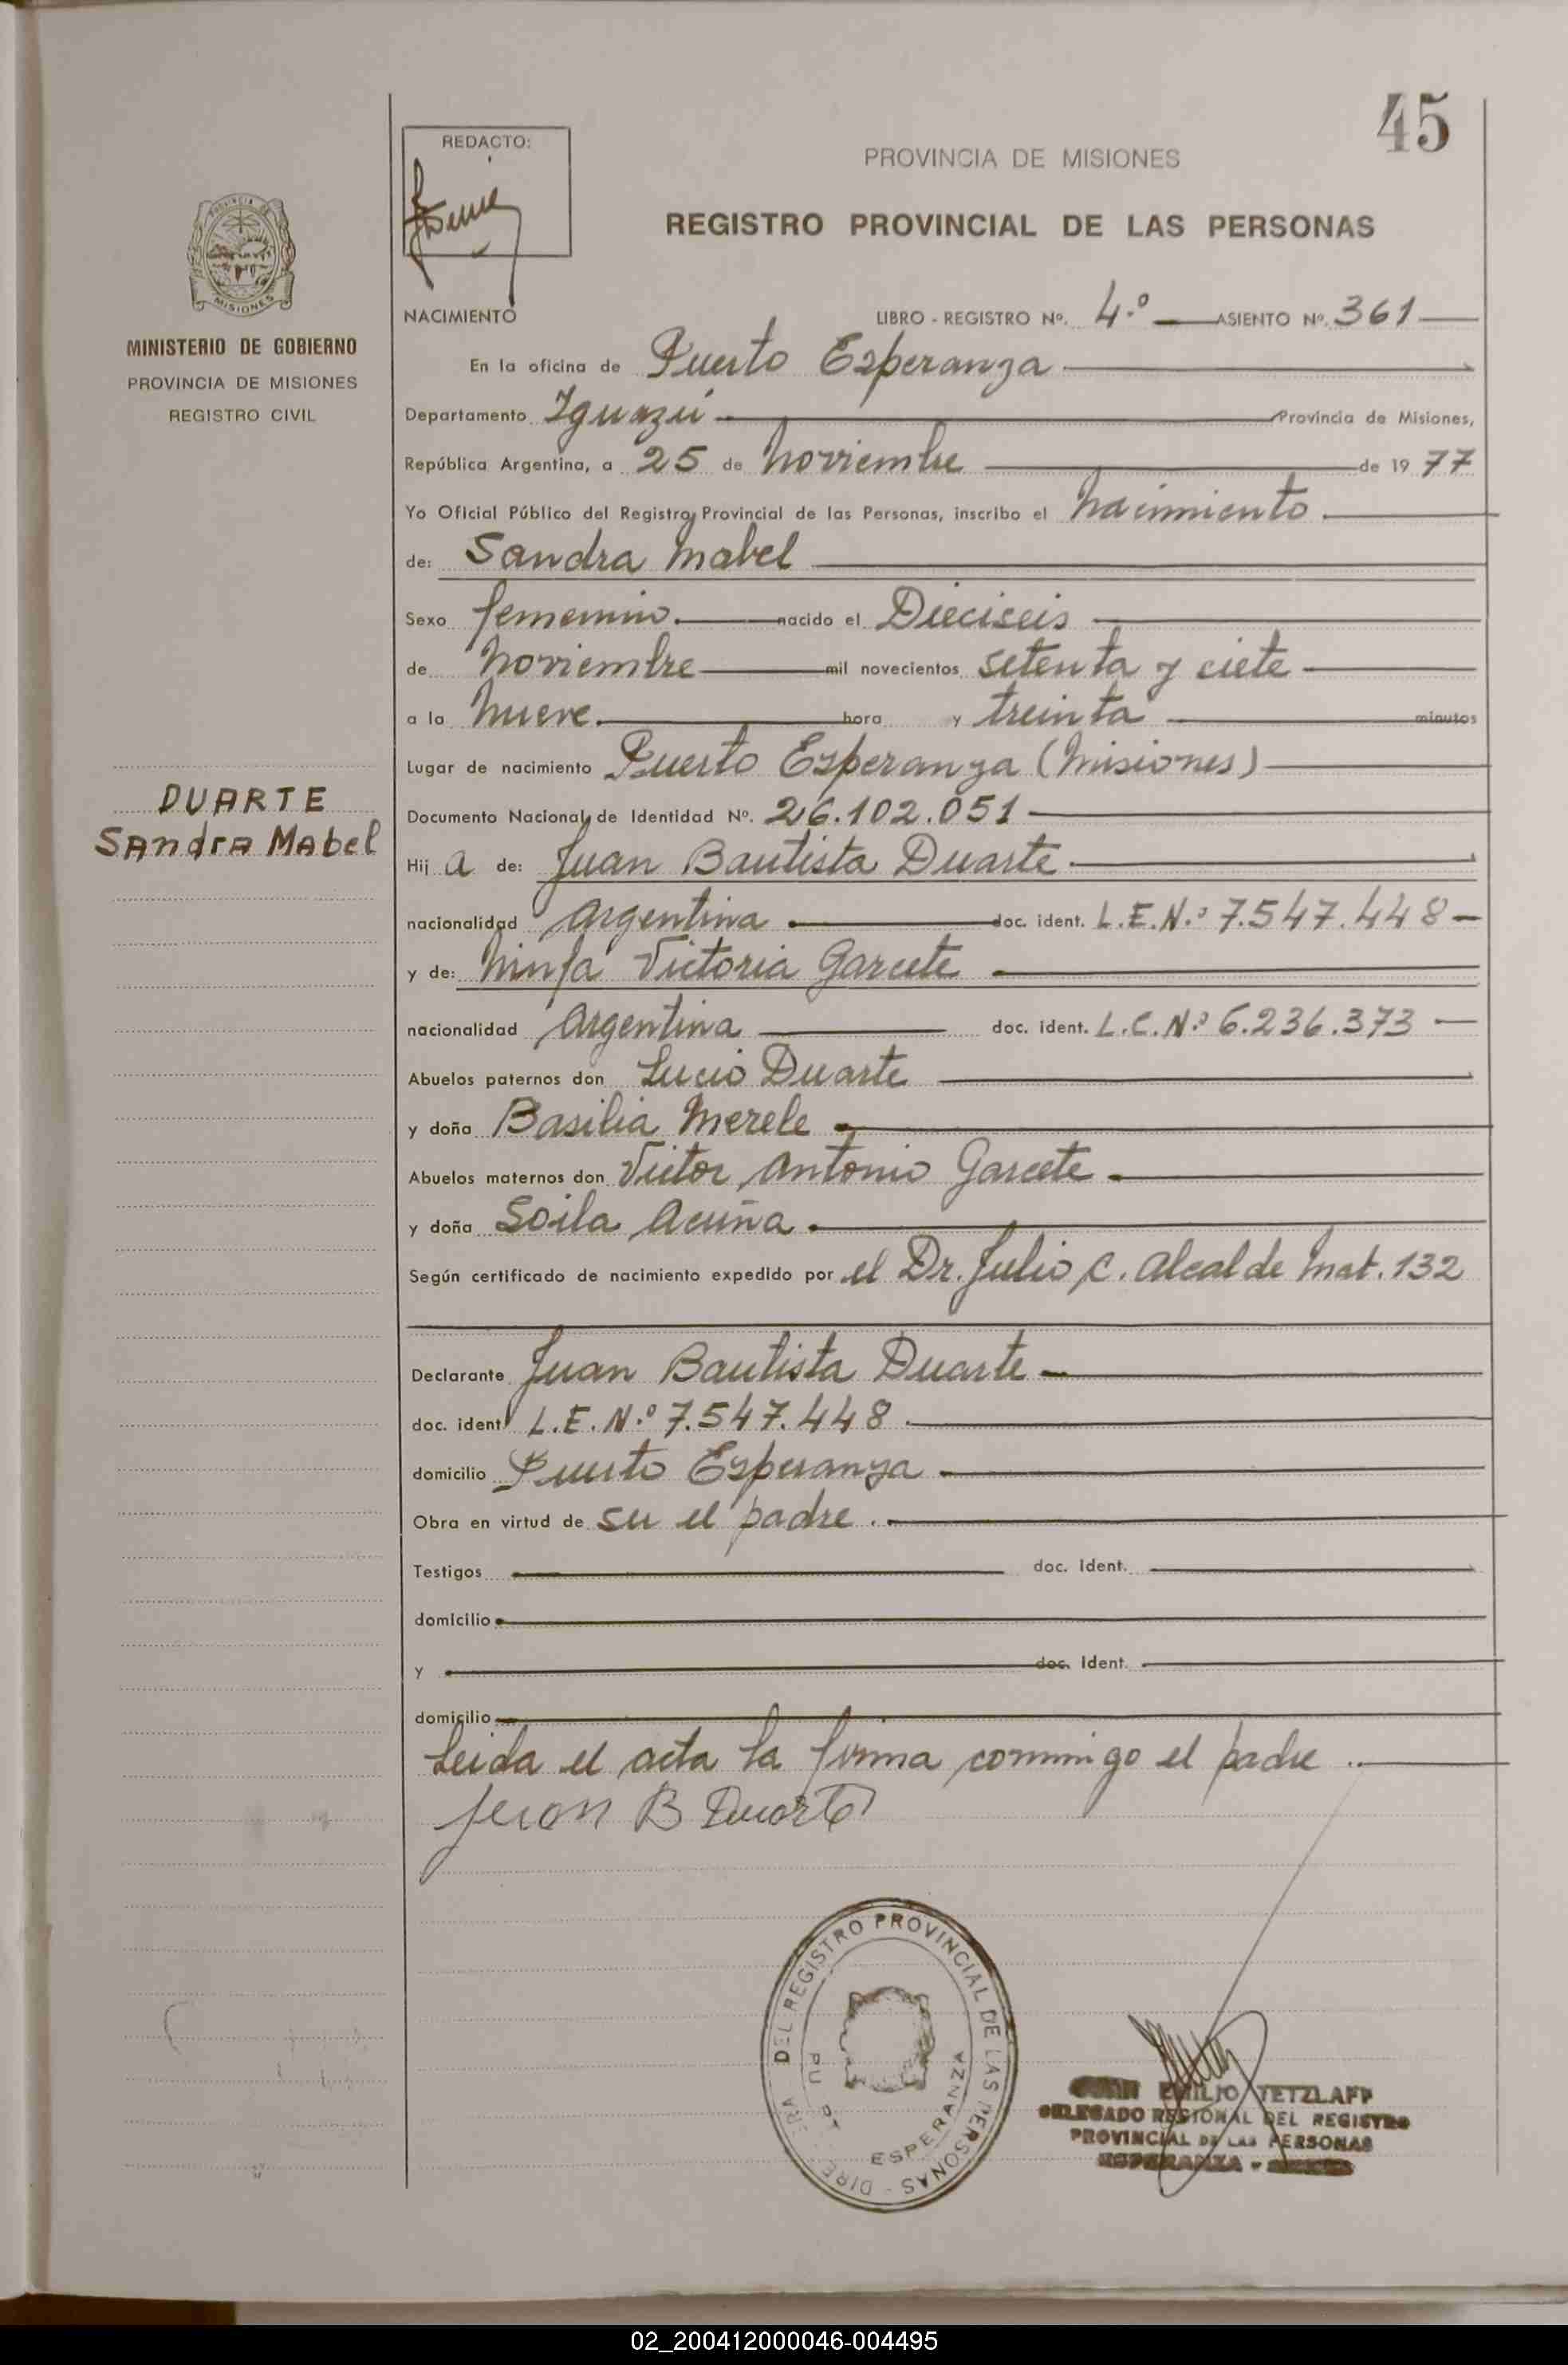 45
REDACTO:
PROVINCIA DE MISIONES
REGISTRO PROVINCIAL DE LAS PERSONAS
MISIONES
MINISTERIO DE GOBIERNO
PROVINCIA DE MISIONES
REGISTRO CIVIL
NACIMIENTO LIBRO - REGISTRO Nº. 4.º ASIENTO Nº. 361
En la oficina de Puerto Esperanza
Departamento Iguazú Provincia de Misiones,
República Argentina, a 25 de Noviembre de 19 77
Yo Oficial Público del Registro Provincial de las Personas, inscribo el Nacimiento
de: Sandra Mabel
Sexo femenino. nacido el Dieciseis
de Noviembre mil novecientos setenta y ciete
a la Nueve. hora y treinta minutos
Lugar de nacimiento Puerto Esperanza (Misiones)
DUARTE
Sandra Mabel
Documento Nacional de Identidad Nº. 26.102.051
Hij a de: Juan Bautista Duarte
nacionalidad Argentina doc. ident. L.E.N.º 7.547.448
y de: Ninfa Victoria Garcete
nacionalidad Argentina doc. ident. L.C.N.º 6.236.373
Abuelos paternos don Lucio Duarte
y doña Basilia Merele
Abuelos maternos don Victor Antonio Garcete
y doña Soila Acuña
Según certificado de nacimiento expedido por el Dr. Julio C. Alcalde Mat. 132
Declarante Juan Bautista Duarte
doc. ident. L.E.N.º 7.547.448
domicilio Puerto Esperanza
Obra en virtud de su el padre.
Testigos doc. Ident.
domicilio
y doc. Ident.
domicilio
Leida el acta la firma conmigo el padre
Juan B Duarte
DEL REGISTRO PROVINCIAL DE LAS PERSONAS
ESPERANZA
EMILIO TETZLAFF
DELEGADO REGIONAL DEL REGISTRO
PROVINCIAL DE LAS PERSONAS
ESPERANZA -
02_200412000046-004495